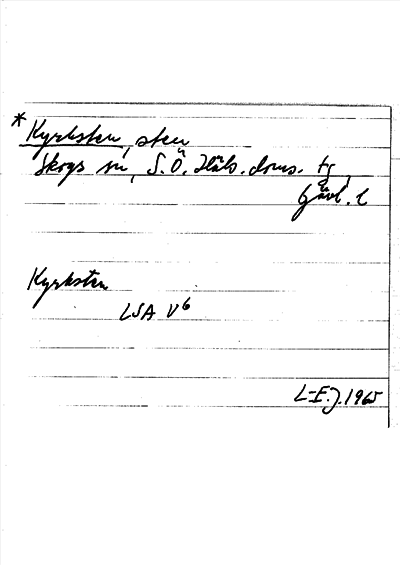 * Kyrksten, sten
Skogs sn, S.Ö. Häls. doms. tg
Gävl. l
Kyrksten
LSA V6
L-E.J. 1965